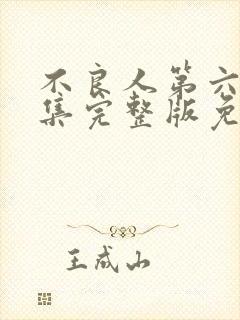 不良人第六
集完整版免
王成山